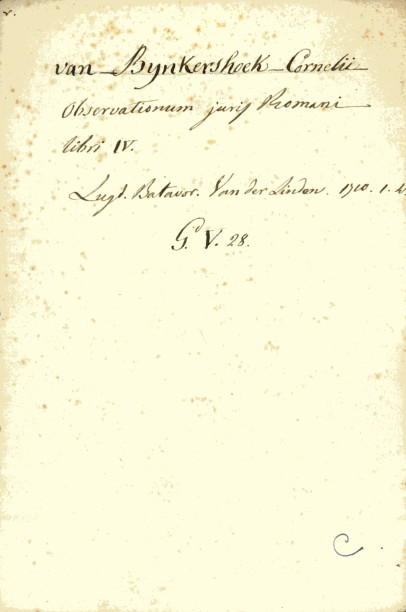 v.
van Bynkershoek Cornelii
Observationum juris Romani
libri IV.
Lugd. Batavor. Van der Linden. 1710. 1. v.
G. V. 28.
C